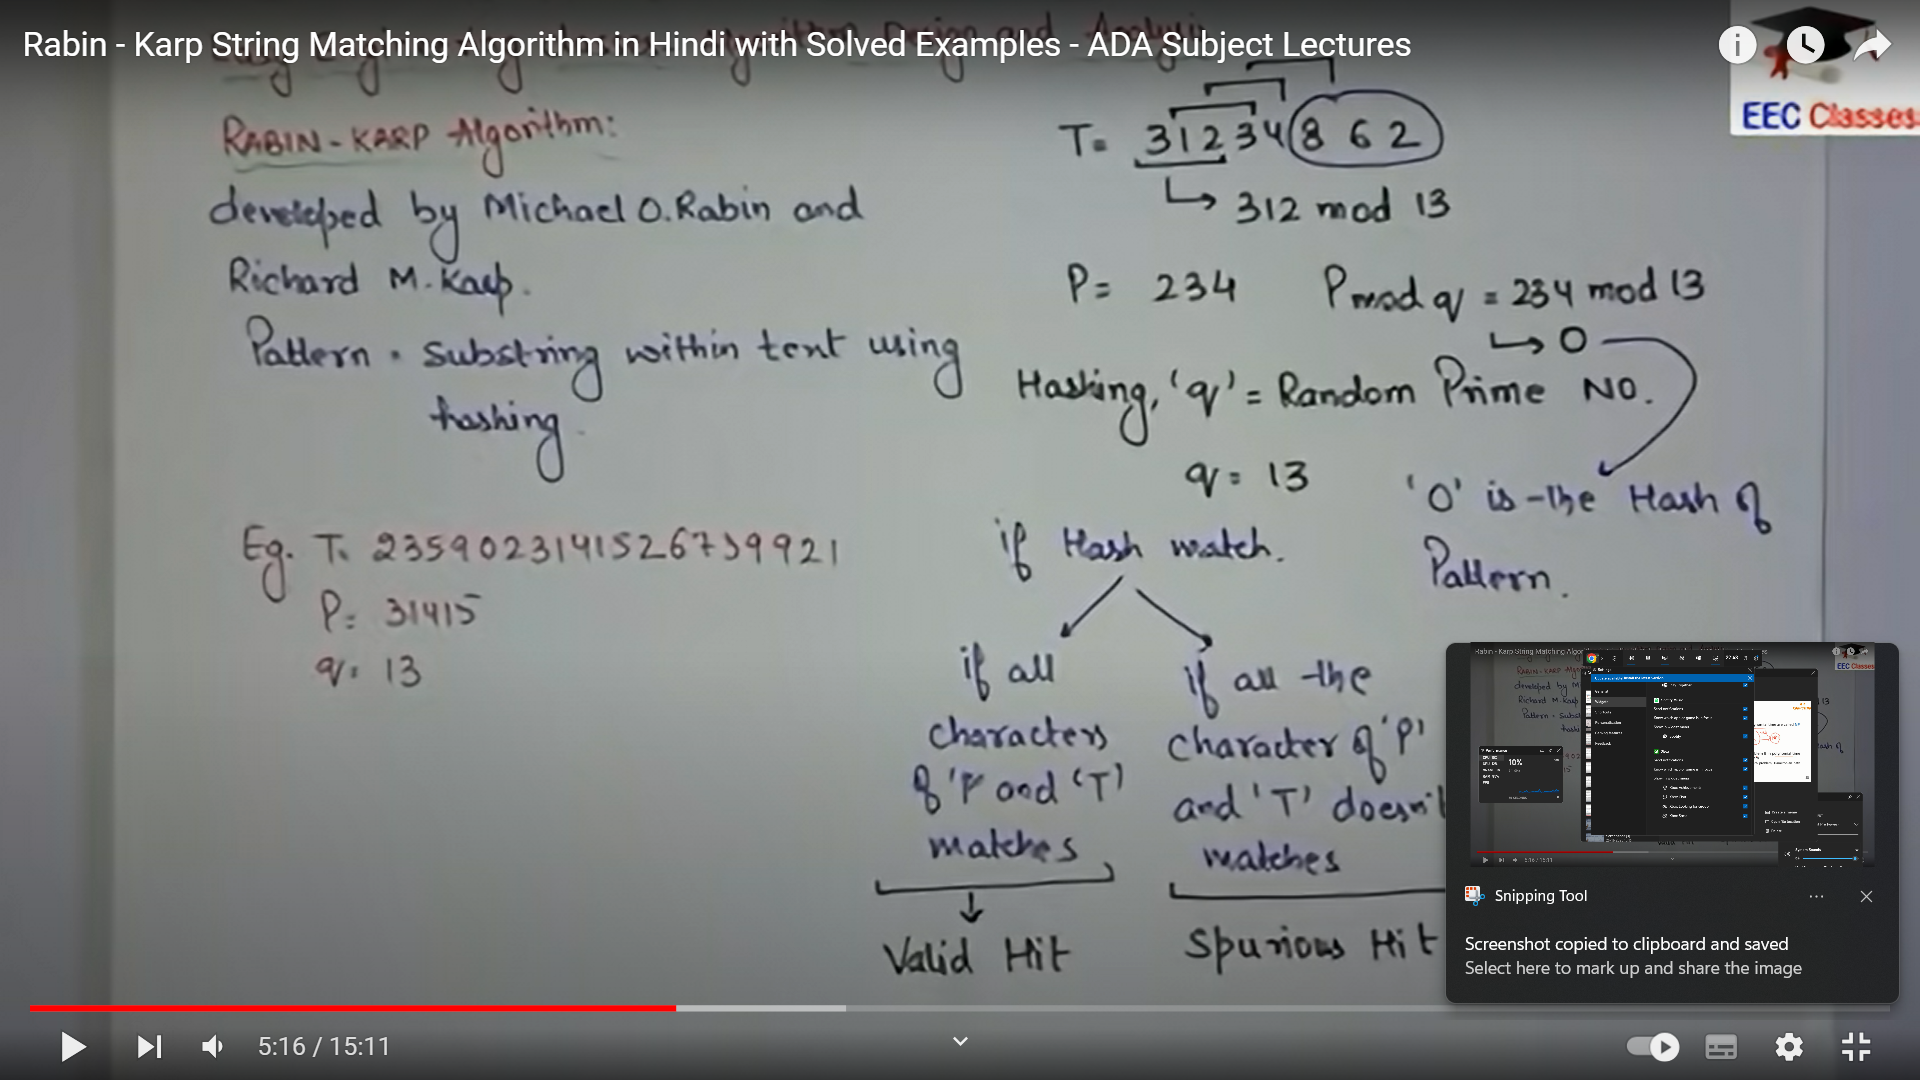 Rabin - Karp String Matching Algorithm in Hindi with Solved Examples - ADA Subject Lectures
EEC Classes
RABIN-KARP Algorithm:
developed by Michael O.Rabin and
Richard M.Karp.
Pattern = substring within text using
hashing.
Eg. T= 2359023141526739921
P= 31415
q= 13
T= 31234862
312 mod 13
P= 234 P mod q = 234 mod 13
0
Hashing, 'q' = Random Prime NO.
q= 13
'0' is the Hash of
Pattern.
if Hash match.
if all
characters
of 'P' and 'T'
matches
Valid Hit
if all the
character of 'P'
and 'T' doesn't
matches
Spurious Hit
Snipping Tool
Screenshot copied to clipboard and saved
Select here to mark up and share the image
5:16 / 15:11